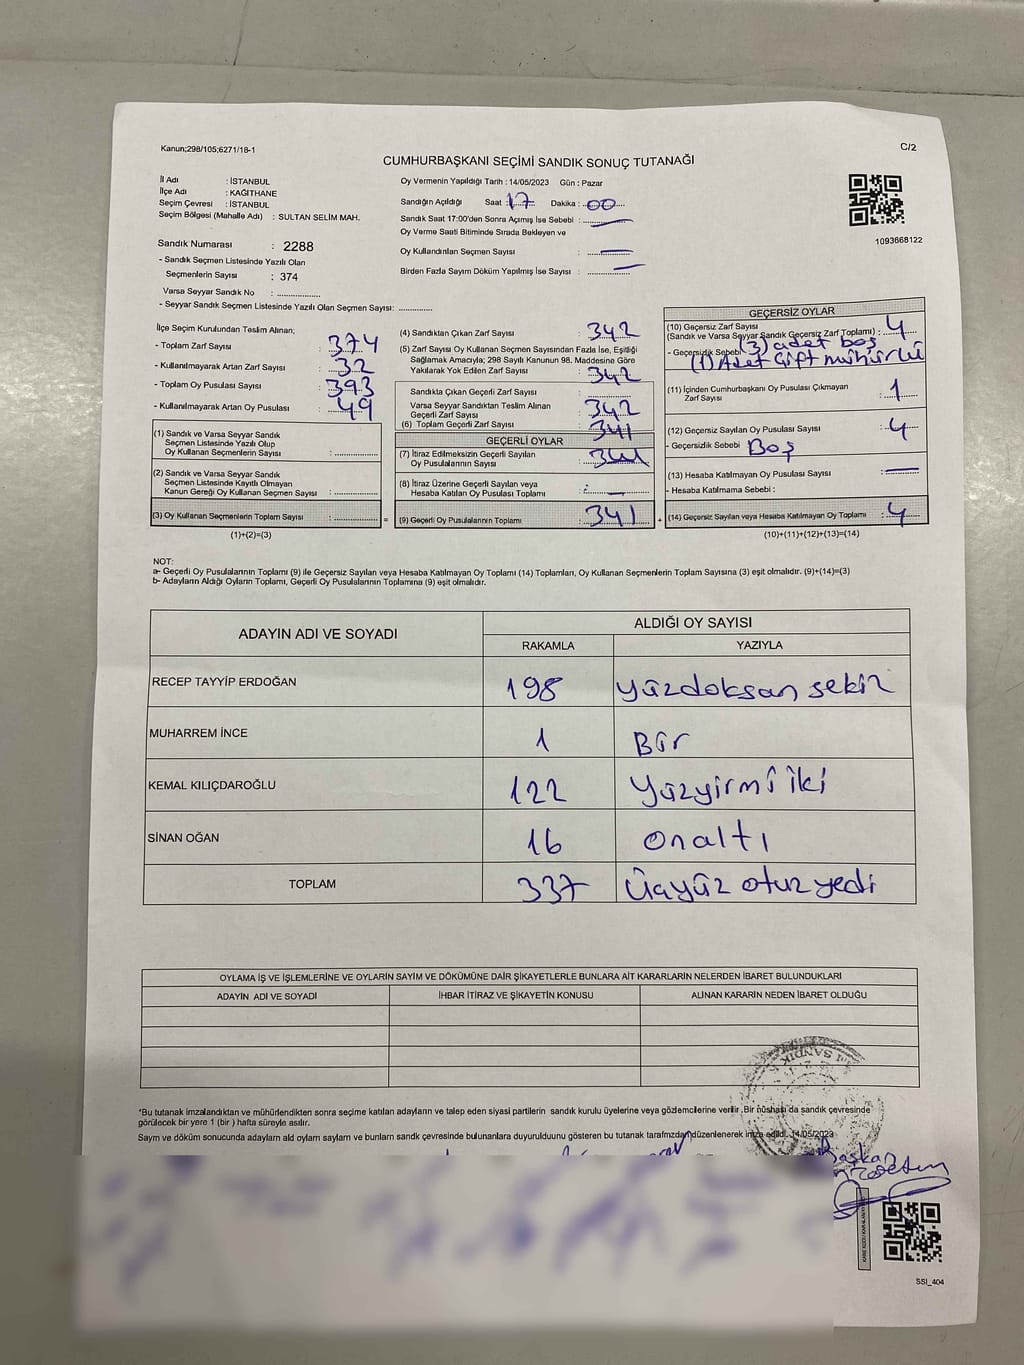 Kanun;298/105;6271/18-1
C/2
CUMHURBAŞKANI SEÇİMİ SANDIK SONUÇ TUTANAĞI
İl Adı : İSTANBUL
İlçe Adı : KAĞITHANE
Seçim Çevresi : İSTANBUL
Seçim Bölgesi (Mahalle Adı) : SULTAN SELİM MAH.
Sandık Numarası : 2288
- Sandık Seçmen Listesinde Yazılı Olan
Seçmenlerin Sayısı : 374
Varsa Seyyar Sandık No : ..................
- Seyyar Sandık Seçmen Listesinde Yazılı Olan Seçmen Sayısı: ..............
Oy Vermenin Yapıldığı Tarih : 14/05/2023 Gün : Pazar
Sandığın Açıldığı Saat : 17 Dakika : 00
Sandık Saat 17:00'den Sonra Açımış İse Sebebi : —
Oy Verme Saati Bitiminde Sırada Bekleyen ve
Oy Kullandırılan Seçmen Sayısı : —
Birden Fazla Sayım Döküm Yapılmış İse Sayısı : —
1093668122
İlçe Seçim Kurulundan Teslim Alınan;
- Toplam Zarf Sayısı : 374
- Kullanılmayarak Artan Zarf Sayısı : 32
- Toplam Oy Pusulası Sayısı : 393
- Kullanılmayarak Artan Oy Pusulası : 49
(1) Sandık ve Varsa Seyyar Sandık
Seçmen Listesinde Yazılı Olup
Oy Kullanan Seçmenlerin Sayısı : ..............
(2) Sandık ve Varsa Seyyar Sandık
Seçmen Listesinde Kayıtlı Olmayan
Kanun Gereği Oy Kullanan Seçmen Sayısı : ..............
(3) Oy Kullanan Seçmenlerin Toplam Sayısı : .............. =
(1)+(2)=(3)
(4) Sandıktan Çıkan Zarf Sayısı : 342
(5) Zarf Sayısı Oy Kullanan Seçmen Sayısından Fazla İse, Eşitliği
Sağlamak Amacıyla; 298 Sayılı Kanunun 98. Maddesine Göre
Yakılarak Yok Edilen Zarf Sayısı : 342
Sandıkta Çıkan Geçerli Zarf Sayısı
Varsa Seyyar Sandıktan Teslim Alınan
Geçerli Zarf Sayısı : 342
(6) Toplam Geçerli Zarf Sayısı : 341
GEÇERLİ OYLAR
(7) İtiraz Edilmeksizin Geçerli Sayılan
Oy Pusulalarının Sayısı : 341
(8) İtiraz Üzerine Geçerli Sayılan veya
Hesaba Katılan Oy Pusulası Toplamı : —
(9) Geçerli Oy Pusulalarının Toplamı : 341 +
GEÇERSİZ OYLAR
(10) Geçersiz Zarf Sayısı
(Sandık ve Varsa Seyyar Sandık Geçersiz Zarf Toplamı) : 4
- Geçersizlik Sebebi (3) adet boş
(1) Adet Çift mühürlü
(11) İçinden Cumhurbaşkanı Oy Pusulası Çıkmayan
Zarf Sayısı : 1
(12) Geçersiz Sayılan Oy Pusulası Sayısı : 4
- Geçersizlik Sebebi Boş
(13) Hesaba Katılmayan Oy Pusulası Sayısı : —
- Hesaba Katılmama Sebebi :
(14) Geçersiz Sayılan veya Hesaba Katılmayan Oy Toplamı : 4
(10)+(11)+(12)+(13)=(14)
NOT:
a- Geçerli Oy Pusulalarının Toplamı (9) ile Geçersiz Sayılan veya Hesaba Katılmayan Oy Toplamı (14) Toplamları, Oy Kullanan Seçmenlerin Toplam Sayısına (3) eşit olmalıdır. (9)+(14)=(3)
b- Adayların Aldığı Oyların Toplamı, Geçerli Oy Pusulalarının Toplamına (9) eşit olmalıdır.
ADAYIN ADI VE SOYADI ALDIĞI OY SAYISI
RAKAMLA YAZIYLA
RECEP TAYYİP ERDOĞAN 198 yüzdoksan sekiz
MUHARREM İNCE 1 Bir
KEMAL KILIÇDAROĞLU 122 Yüzyirmi iki
SİNAN OĞAN 16 onaltı
TOPLAM 337 Üçyüz otuz yedi
OYLAMA İŞ VE İŞLEMLERİNE VE OYLARIN SAYIM VE DÖKÜMÜNE DAİR ŞİKAYETLERLE BUNLARA AİT KARARLARIN NELERDEN İBARET BULUNDUKLARI
ADAYIN ADI VE SOYADI İHBAR İTİRAZ VE ŞİKAYETİN KONUSU ALINAN KARARIN NEDEN İBARET OLDUĞU
*Bu tutanak imzalandıktan ve mühürlendikten sonra seçime katılan adayların ve talep eden siyasi partilerin sandık kurulu üyelerine veya gözlemcilerine verilir .Bir nüshası da sandık çevresinde
görülecek bir yere 1 (bir ) hafta süreyle asılır.
Sayım ve döküm sonucunda adayların aldı oyların sayların ve bunların sandk çevresinde bulunanlara duyurulduunu gösteren bu tutanak tarafmzdan düzenlenerek imza edildi. 14/05/2023
Başkan
SSI_404